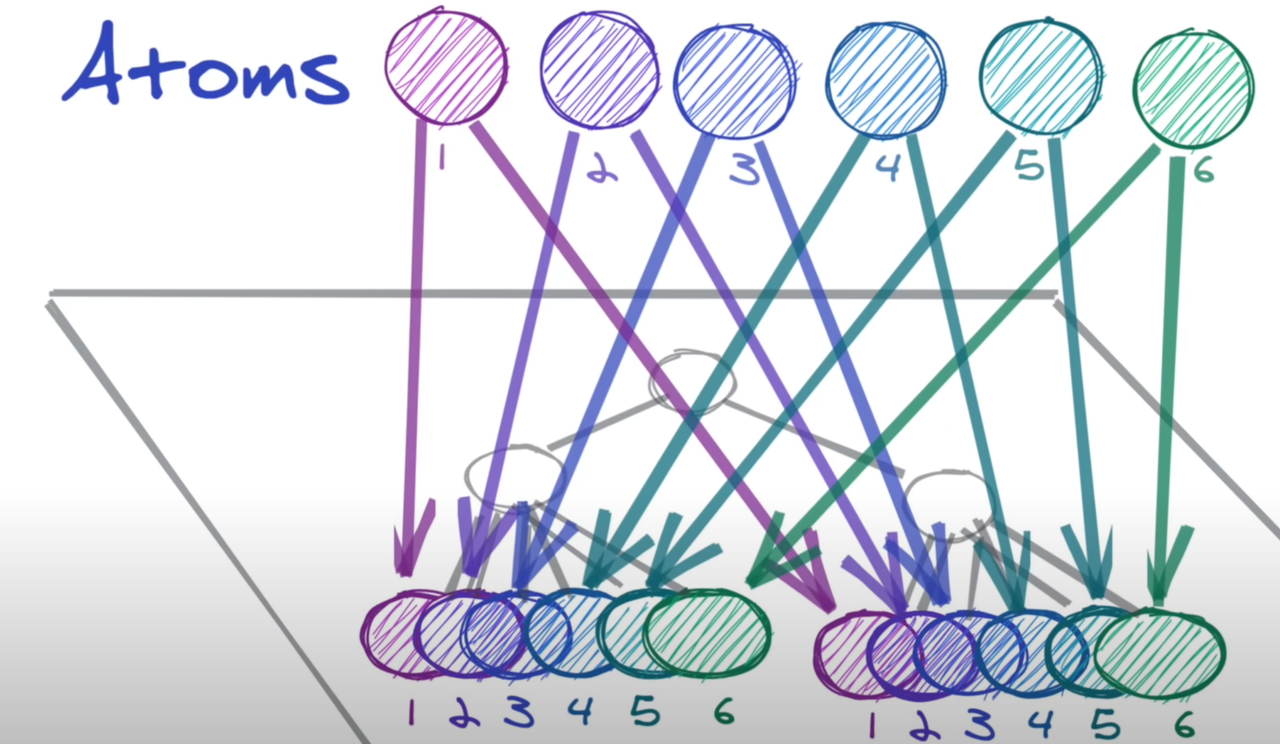 Atoms
1 2 3 4 5 6
1 2 3 4 5 6 1 2 3 4 5 6